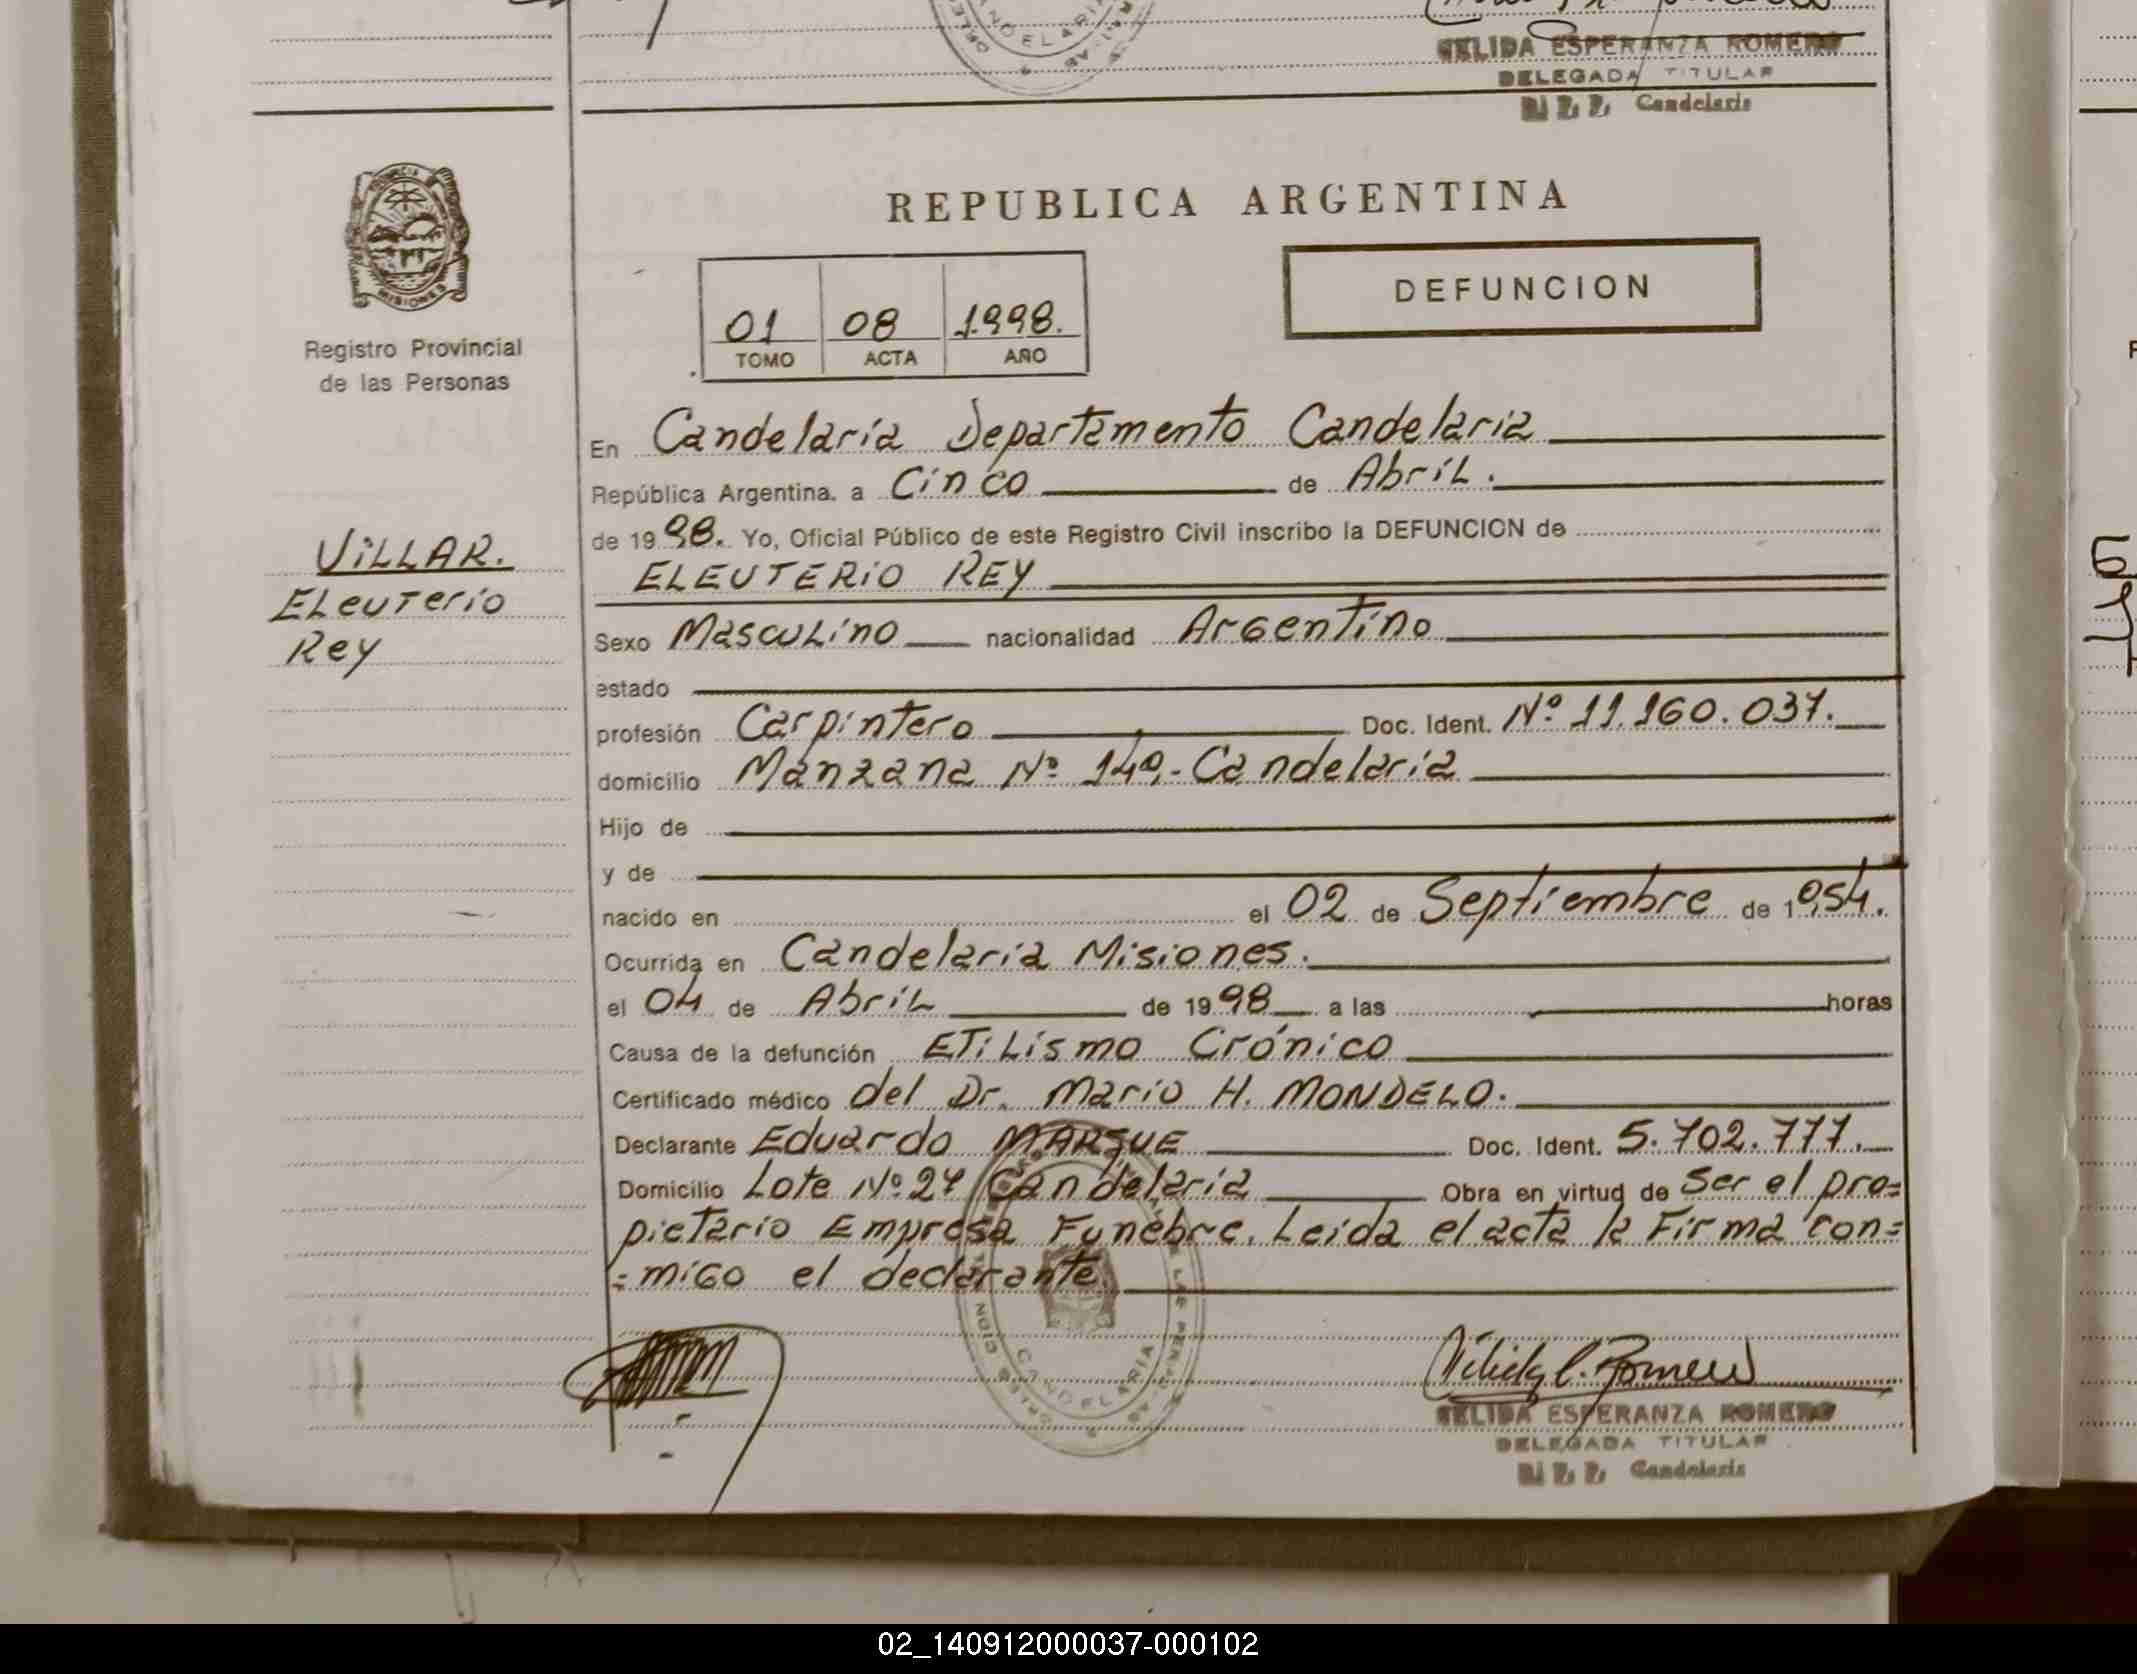 CANDELARIA
NELIDA ESPERANZA ROMERO
DELEGADA TITULAR
R. P. P. Candelaria
PROVINCIA
MISIONES
Registro Provincial
de las Personas
REPUBLICA ARGENTINA
DEFUNCION
01 08 1998.
TOMO ACTA AÑO
VILLAR.
Eleuterio
Rey
En Candelaria Departamento Candelaria
República Argentina. a Cinco de Abril.
de 1998. Yo, Oficial Público de este Registro Civil inscribo la DEFUNCION de
ELEUTERIO REY
Sexo Masculino nacionalidad Argentino
estado
profesión Carpintero Doc. Ident. Nº 11.160.037.
domicilio Manzana Nº 149.- Candelaria
Hijo de
y de
nacido en el 02 de Septiembre de 1954.
Ocurrida en Candelaria Misiones.
el 04 de Abril de 1998 a las horas
Causa de la defunción Etilismo Crónico
Certificado médico del Dr. Mario H. MONDELO.
Declarante Eduardo MARQUE Doc. Ident. 5.702.777.
Domicilio Lote Nº 27 Candelaria Obra en virtud de Ser el pro=
pietario Empresa Funebre. Leida el acta la Firma con=
=migo el declarante.
CANDELARIA
Nélida E. Romero
NELIDA ESPERANZA ROMERO
DELEGADA TITULAR
R. P. P. Candelaria
02_140912000037-000102